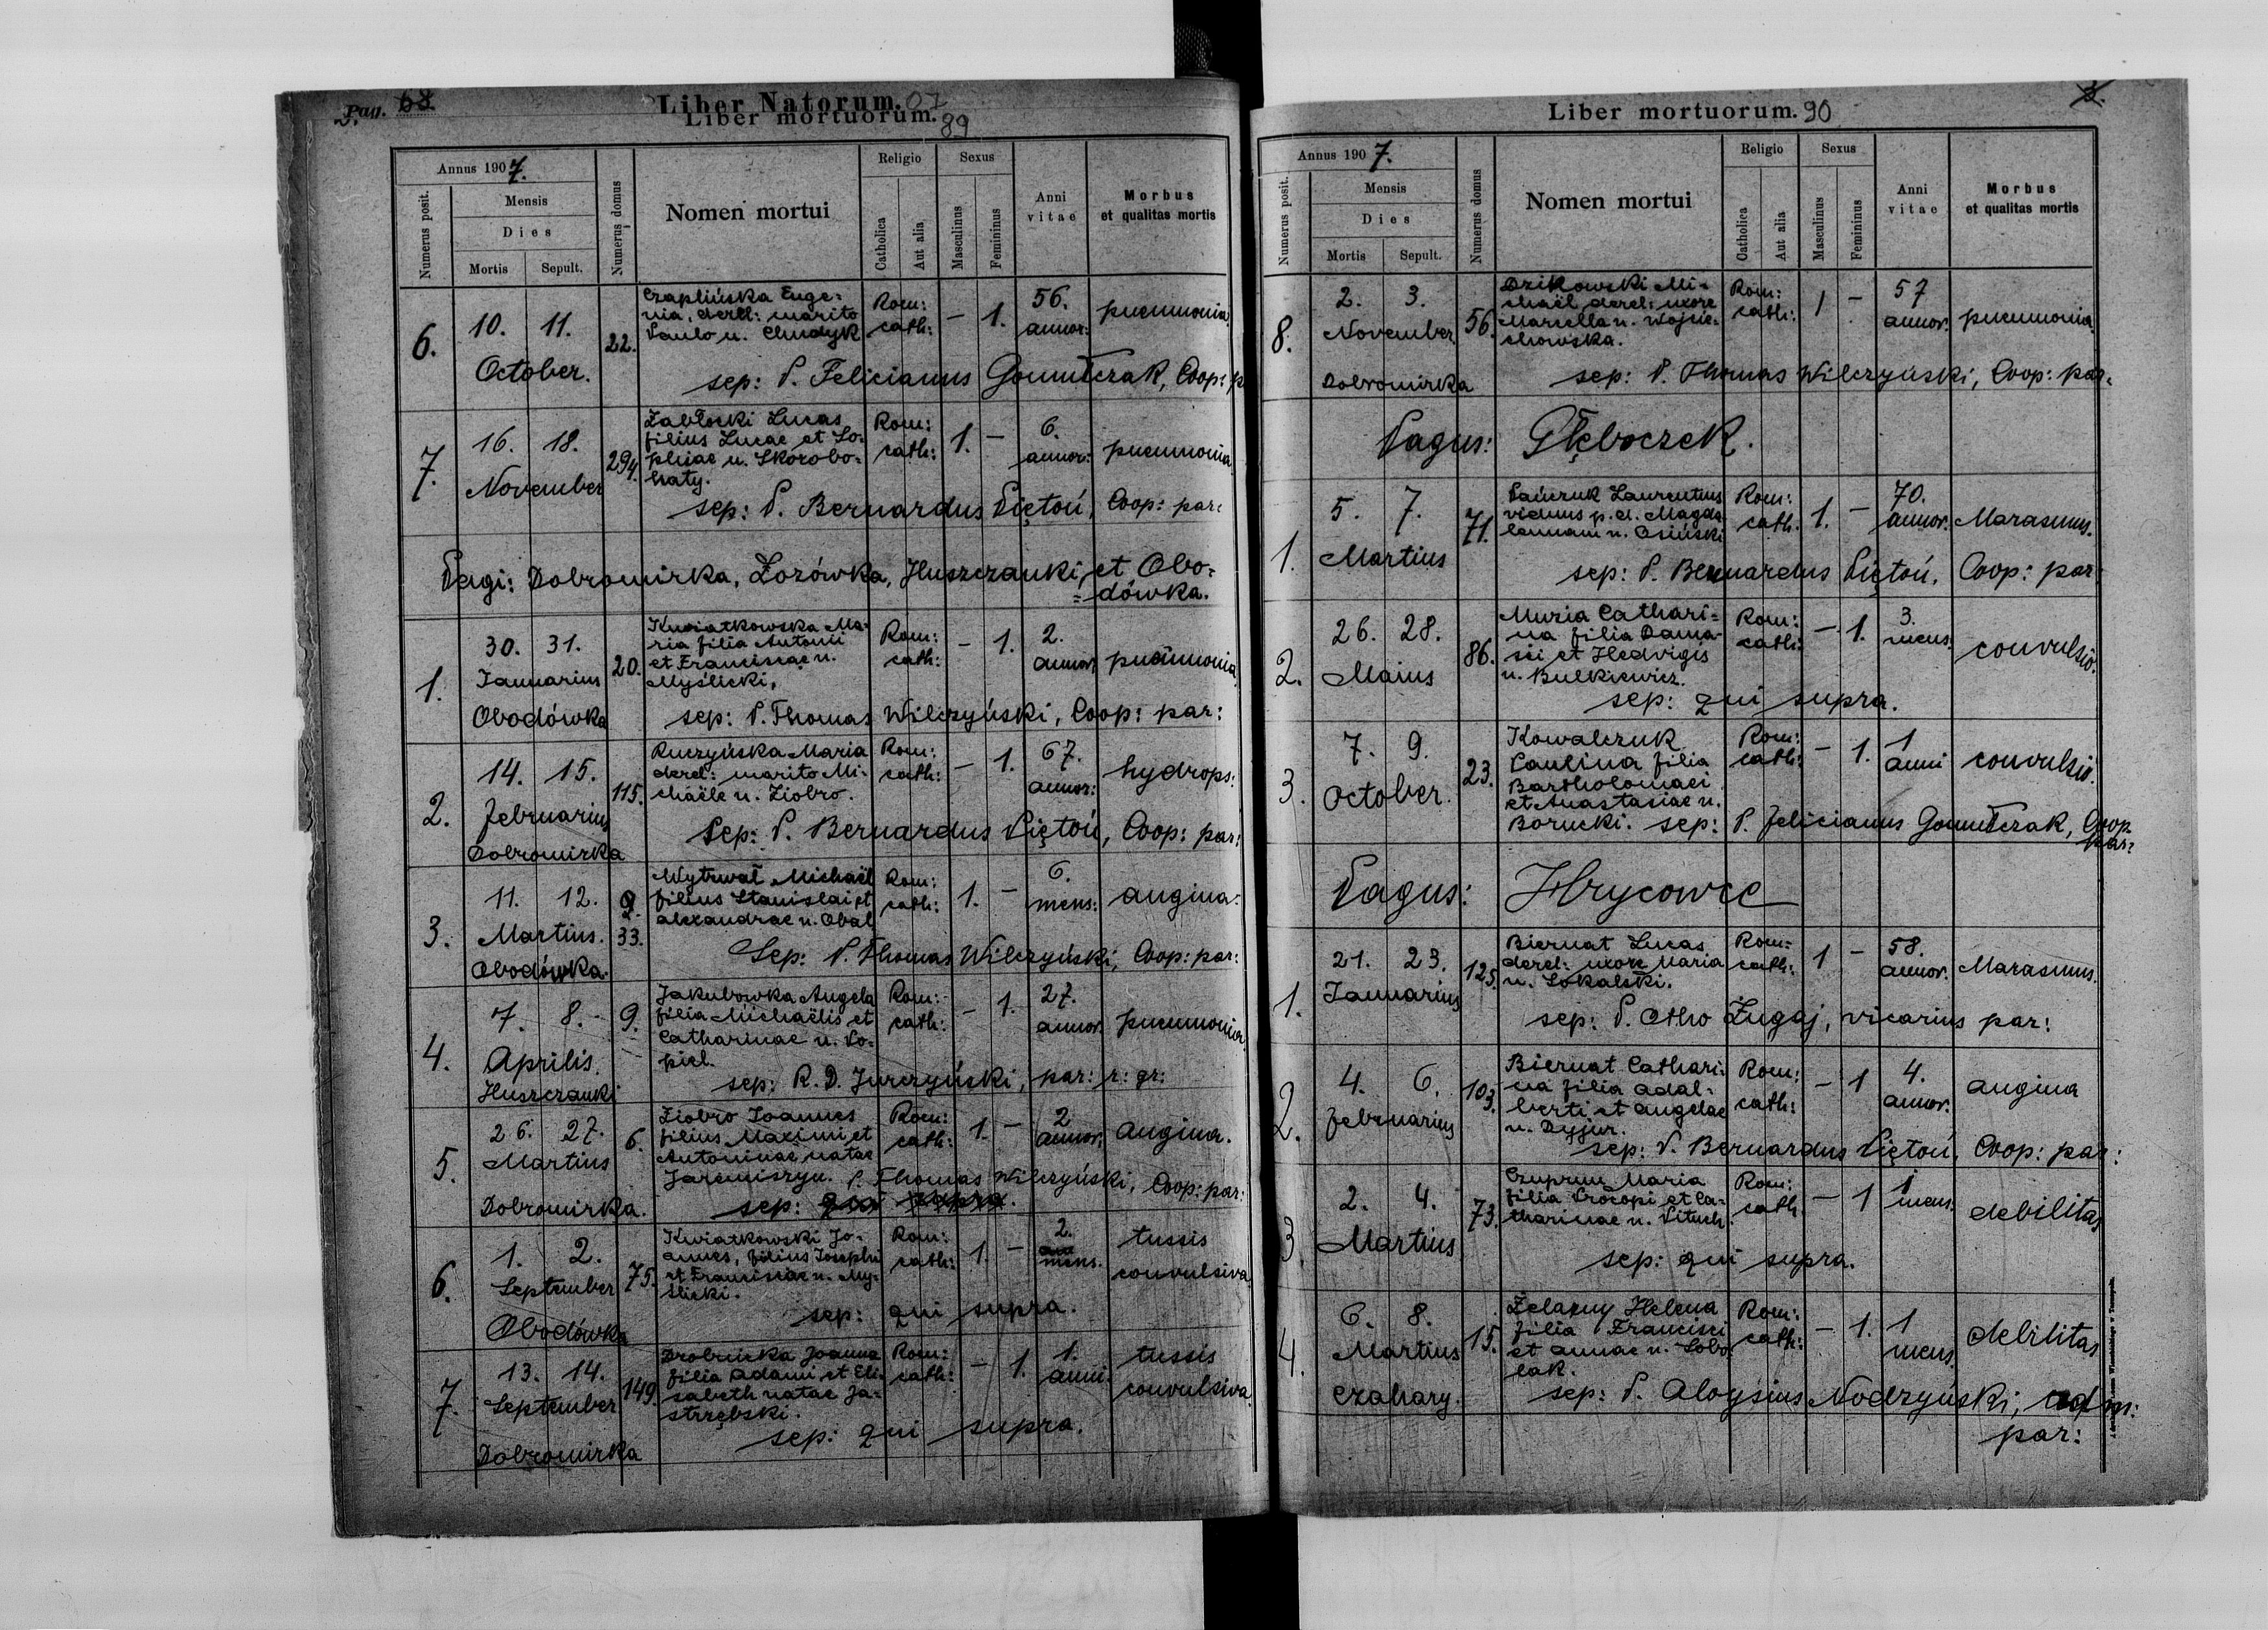 Pag. 68.
Liber Natorum. 07
Liber mortuorum. 89
Annus 1907.
Numerus posit.
Mensis
Dies
Mortis
Sepult.
Numerus domus
Nomen mortui
Religio
Catholica
Aut alia
Sexus
Masculinus
Femininus
Anni vitae
Morbus
et qualitas mortis
6.
10. 11.
October.
22.
Czaplińska Euge=
nia, derel: marito
Paulo n. Chudyk
Rom:
cath:
– 1.
56.
annor:
pneumonia
sep: P. Felicianus Gomułczak, Coop: p
7.
16. 18.
November
294.
Zabłocki Lucas
filius Lucae et So=
phiae n. Skorobo=
haty.
Rom:
cath:
1. –
6.
annor:
pneumonia
sep: P. Bernardus Piętoń, Coop: par:
Pagi: Dobromirka, Łozówka, Huszczanki, et Obo=
=dówka.
1.
30. 31.
Januarius
Obodówka
20.
Kwiatkowska Ma=
ria filia Antonii
et Franciscae n.
Myślicki,
Rom:
cath:
– 1.
2.
annor,
pneumonia
sep: P. Thomas Wilczyński, Coop: par:
2.
14. 15.
Februarius
Dobromirka
115.
Ruczyńska Maria
derel: marito Mi=
chaële n. Ziobro.
Rom:
cath:
– 1.
67.
annor:
hydrops.
Sep: P. Bernardus Piętoń, Coop: par:
3.
11. 12.
Martius.
Obodówka.
33.
Wytrwał Michaël
filius Stanislai et
Alexandrae n. Obal
Rom:
cath:
1. –
6.
mens:
angina.
Sep: P. Thomas Wilczyński, Coop: par:
4.
7. 8.
Aprilis.
Huszczanki
9.
Jakubowka Angela
filia Michaëlis et
Catharinae n. Po=
piel.
Rom:
cath:
– 1.
27.
annor.
pneumonia.
sep: R. D. Jurczyński, par: r: gr:
5.
26. 27.
Martius
Dobromirka.
6.
Ziobro Joannes
filius Maximi et
Antoninae natae
Jaremiszyn.
Rom:
cath:
1. –
2
annor,
angina.
P. Thomas Wilczyński, Coop: par:
sep: qui supra.
6.
1. 2.
September
Obodówka
75.
Kwiatkowski Jo=
annes, filius Josephi
et Franciscae n. My=
ślicki.
Rom:
cath:
1. –
2.
mens.
tussis
convulsiva.
sep: qui supra.
7.
13. 14.
September
Dobromirka
149.
Drobnicka Joanna
filia Adami et Eli=
sabeth natae Ja=
strzębski.
Rom:
cath:
– 1.
1.
anni.
tussis
convulsiva
sep: qui supra.
Liber mortuorum. 90
Annus 1907.
Numerus posit.
Mensis
Dies
Mortis
Sepult.
Numerus domus
Nomen mortui
Religio
Catholica
Aut alia
Sexus
Masculinus
Femininus
Anni vitae
Morbus
et qualitas mortis
8.
2. 3.
November
Dobromirka
56.
Dzikowski Mi=
chaël derel: uxore
Marcella n. Wojcie=
chowska.
Rom:
cath:
1 –
57
annor.
pneumonia.
sep: P. Thomas Wilczyński, Coop: par.
Pagus: Głęboczek.
1.
5. 7.
Martius
71.
Pańczuk Laurentius
viduus p. d. Magda
lenam n. Osiński
Rom:
cath.
1. –
70.
annor.
Marasmus.
sep: P. Bernardus Piętoń, Coop: par
2.
26. 28.
Maius
86.
Muzia Cathari=
na filia Dama=
sci et Hedvigis
n. Bulkiewicz.
Rom:
cath:
– 1.
3.
mens.
convulsio.
sep: qui supra.
3.
7. 9.
October.
23.
Kowalczuk
Paulina filia
Bartholomaei
et Anastasiae n.
Borucki.
Rom:
cath:
– 1.
1
anni
convulsio.
sep: P. Felicianus Gomułczak, Coop
par:
Pagus: Hrycowce
1.
21. 23.
Januarius
125.
Biernat Lucas
derel: uxore Maria
n. Sokalski.
Rom=
cath:
1 –
58.
annor.
Marasmus.
sep: P. Otho Żugaj, vicarius par:
2.
4. 6.
Februarius
103.
Biernat Cathari=
na filia Adal=
berti et Angelae
n. Dyjur.
Rom:
cath:
– 1
4.
annor.
angina
sep: P. Bernardus Piętoń, Coop: par:
3.
2. 4.
Martius
73.
Czuprun Maria
filia Procopi et Ca=
tharinae n. Pituch.
Rom:
cath.
– 1
1
mens.
debilitas
sep: qui supra.
4.
6. 8.
Martius
Czahary.
15.
Żelazny Helena
filia Francisci
et Annae n. Sobo
lak.
Rom:
cath:
– 1.
1
mens.
debilitas
sep: P. Aloysius Nodzyński, adm:
par: